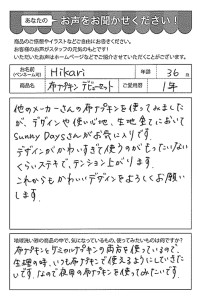 あなたの
お声をお聞かせください!
商品のご感想やイラストなどご自由にお書きください。
お客様のお声がスタッフの元気のもとです!
いただいたお声はホームページなどでご紹介させていただくことがございます。
お名前 Hikari 年齢 36 才
(ペンネーム可)
商品名 布ナプキン デビューセット ご愛用歴 1年
他のメーカーさんの布ナプキンを使ってみました
が、デザインや使い心地、生地 全てにおいて
Sunny Daysさんがお気に入りです。
デザインがかわいすぎて使うのがもったいない
くらいステキで、テンション上がります。
これからもかわいいデザインをよろしくお願い
します。
地球洗い隊の商品の中で、気になっているもの、使ってみたいものは何ですか?
布ナプキンとケミカルナプキンの両方を使っているので、
生理の時、いつも布ナプキンで使えるようにしていきたい
です。なので夜用の布ナプキンを使ってみたいです。